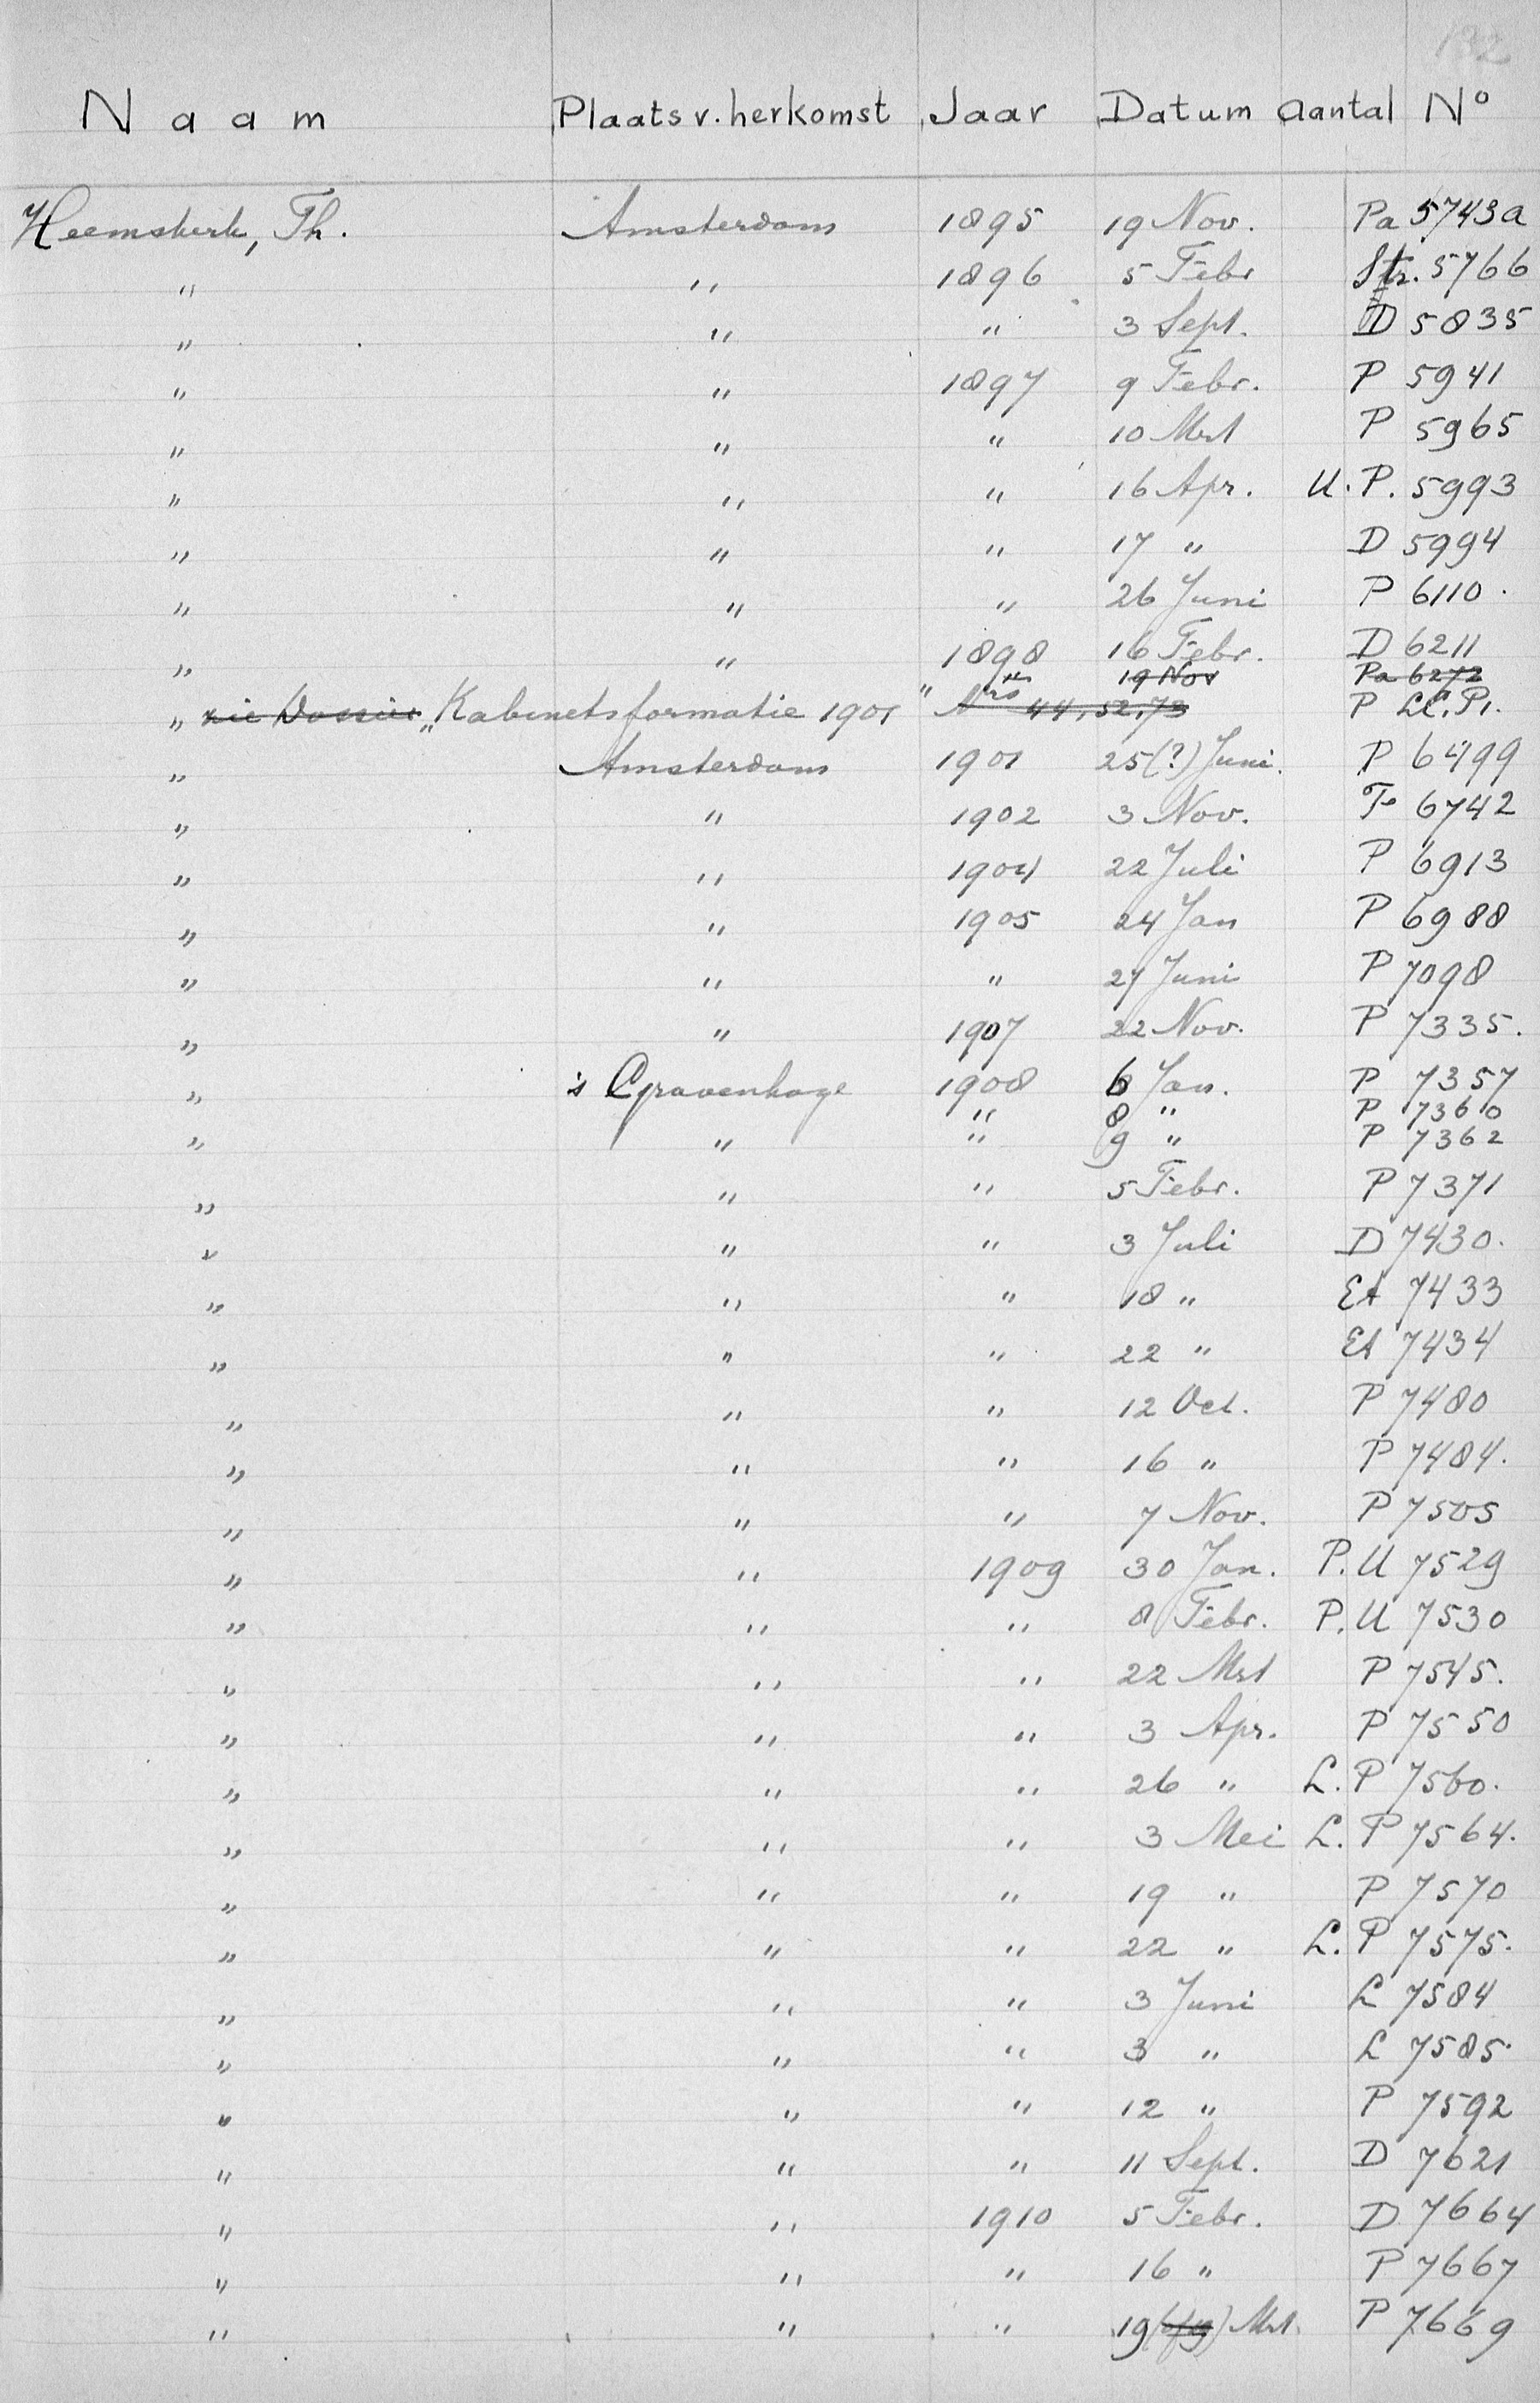 132
Naam Plaats v. herkomst Jaar Datum Aantal No
Heemskerk, Th. Amsterdam 1895 19 Nov. Pa 5743a
" " 1896 5 Febr Str. 5766
" " " 3 Sept. D 5835
" " 1897 9 Febr. P 5941
" " " 10 Mrt P 5965
" " " 16 Apr. U. P. 5993
" " " 17 " D 5994
" " " 26 Juni P 6110.
" " 1898 16 Febr. D 6211
" 19 Nov Pa 6272
" zie Dossier „Kabinetsformatie 1901" Nrs 44, 52, 73 P
" Amsterdam 1901 25(?) Juni. P 6499
" " 1902 3 Nov. 6742
" " 1904 22 Juli P 6913
" " 1905 24 Jan P 6988
" " " 27 Juni P 7098
" " 1907 22 Nov. P 7335.
" 's Gravenhage 1908 6 Jan. P 7357
" 8 " P 7360
" " " 9 " P 7362
" " " 5 Febr. P 7371
" " " 3 Juli D 7430.
" " " 18 " Et 7433
" " " 22 " Et 7434
" " " 12 Oct. P 7480
" " " 16 " P 7484.
" " " 7 Nov. P 7505
" " 1909 30 Jan. P. U 7529
" " " 8 Febr. P. U 7530
" " " 22 Mrt P 7545.
" " " 3 Apr. P 7550
" " " 26 " L. P 7560.
" " " 3 Mei L. P 7564.
" " " 19 " P 7570
" " " 22 " L. P 7575.
" " " 3 Juni L 7584
" " " 3 " L 7585.
" " " 12 " P 7592
" " " 11 Sept. D 7621
" " 1910 5 Febr. D 7664
" " " 16 " P 7667
" " " 19 Mrt. P 7669